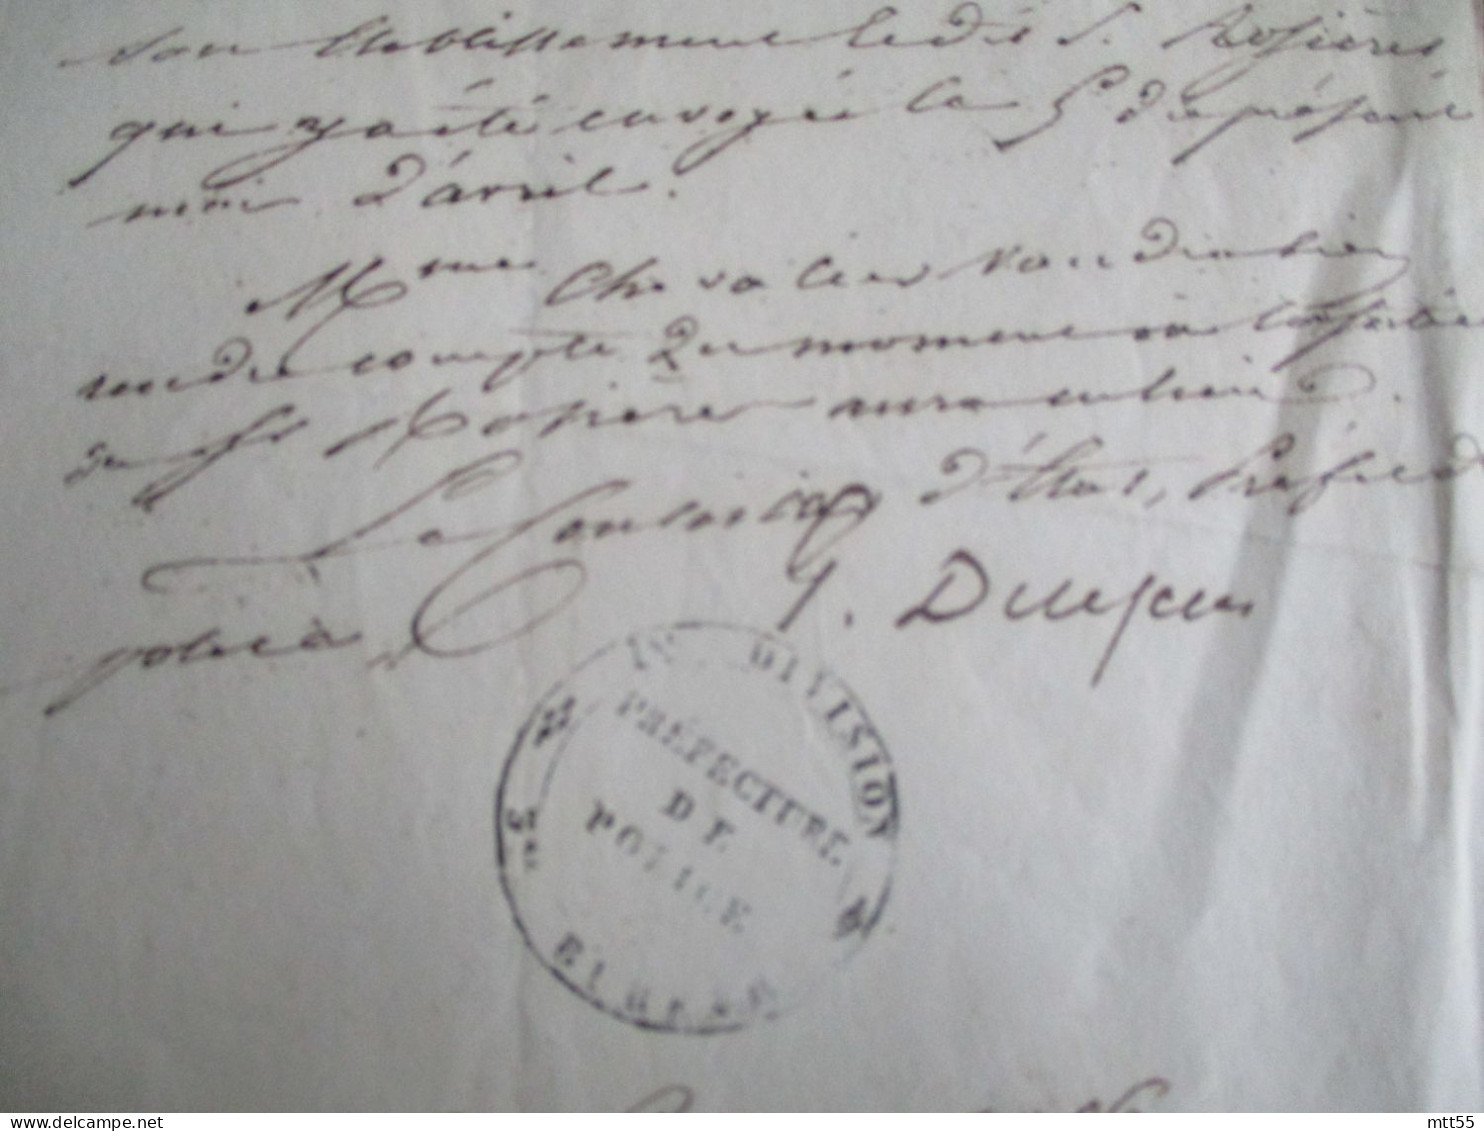 son Etablissement ledit S. Rosières
qui y a été envoyé le 5 du présent
mois d'avril.
Mme Chevalier voudra bien
rendre compte du moment où la sortie
du Sr Rosières aura eu lieu.
Le Conseiller d'Etat, Préfet de
police,
J. Dubois
IVe DIVISION
PRÉFECTURE
DE
POLICE
BUREAU
www.delcampe.net
mtt55